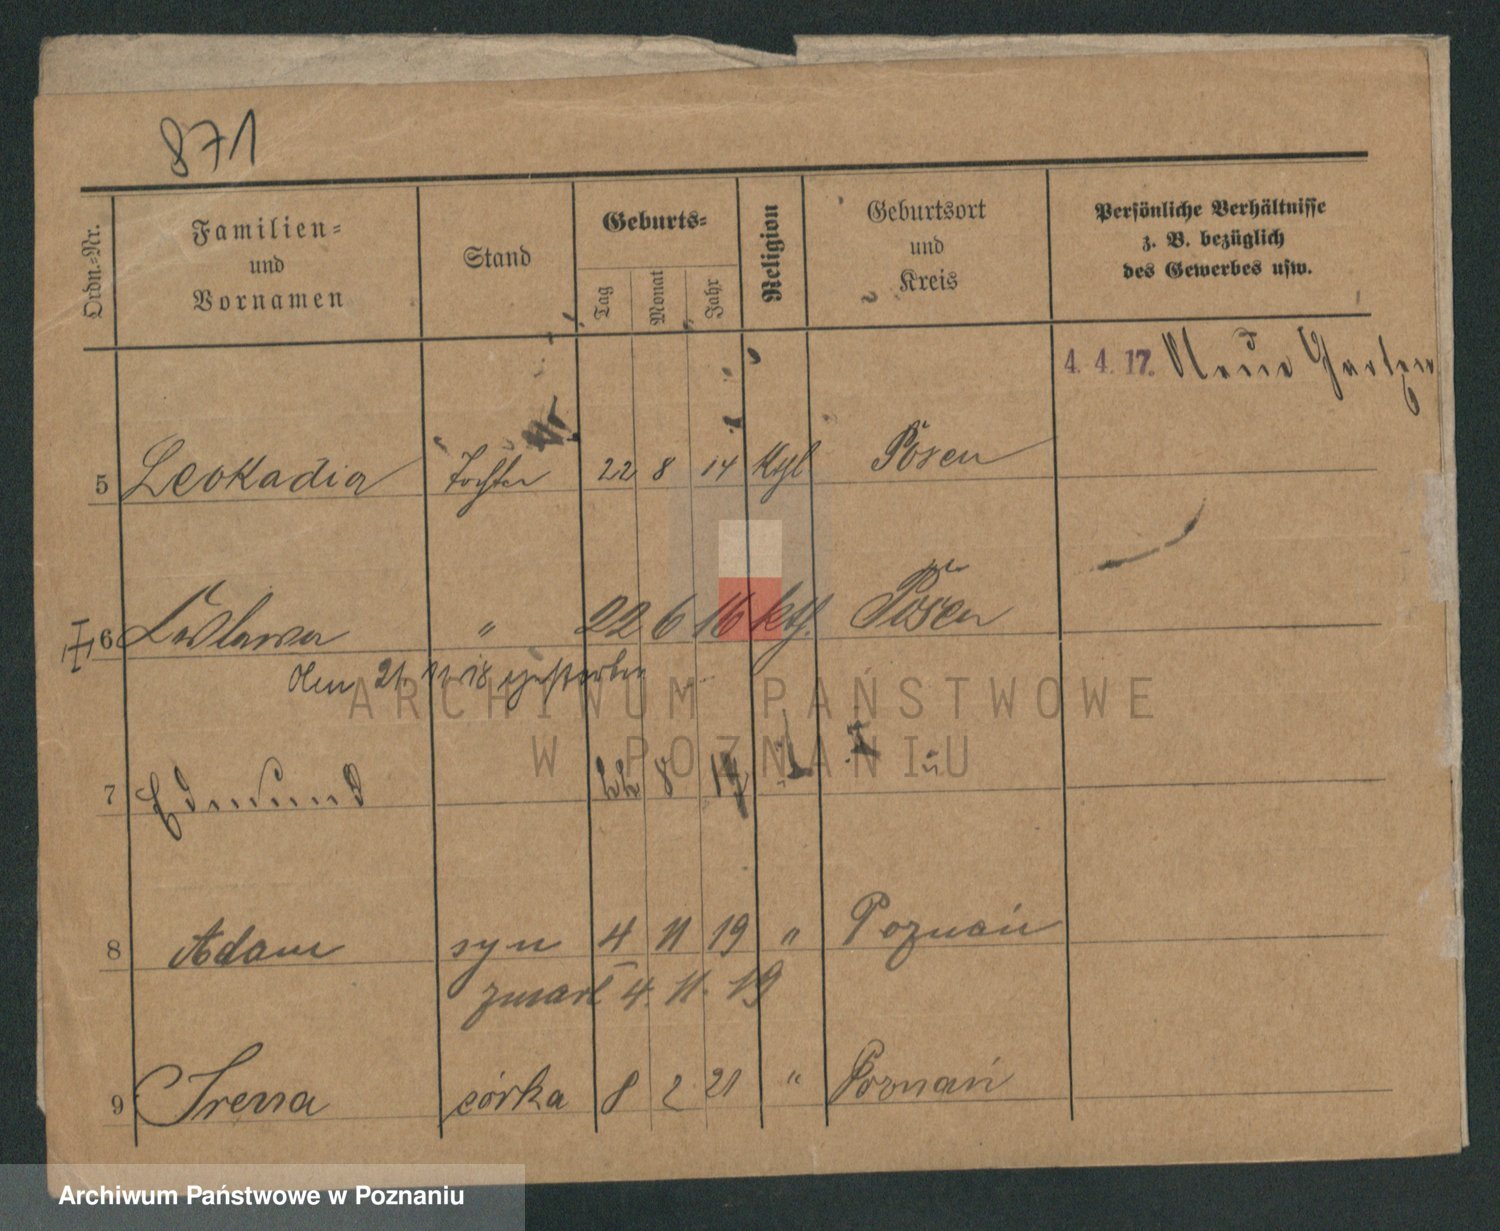 871
Ordn.-Nr.
Familien-
und
Vornamen
Stand
Geburts-
Tag
Monat
Jahr
Religion
Geburtsort
und
Kreis
Persönliche Verhältnisse
z. B. bezüglich
des Gewerbes usw.
4. 4. 17. Neue
5 Leokadia Tochter 22 8 14 Kthl Posen
6 " 22 6 16 kth. Posen
Am 21. 11 18 gestorben
7 Edmund 8 "
8 Adam syn 4 11 19 " Poznań
zmarł 4. 11. 19
9 Irena córka 8 2 21 " Poznań
ARCHIWUM PAŃSTWOWE
W POZNANIU
Archiwum Państwowe w Poznaniu